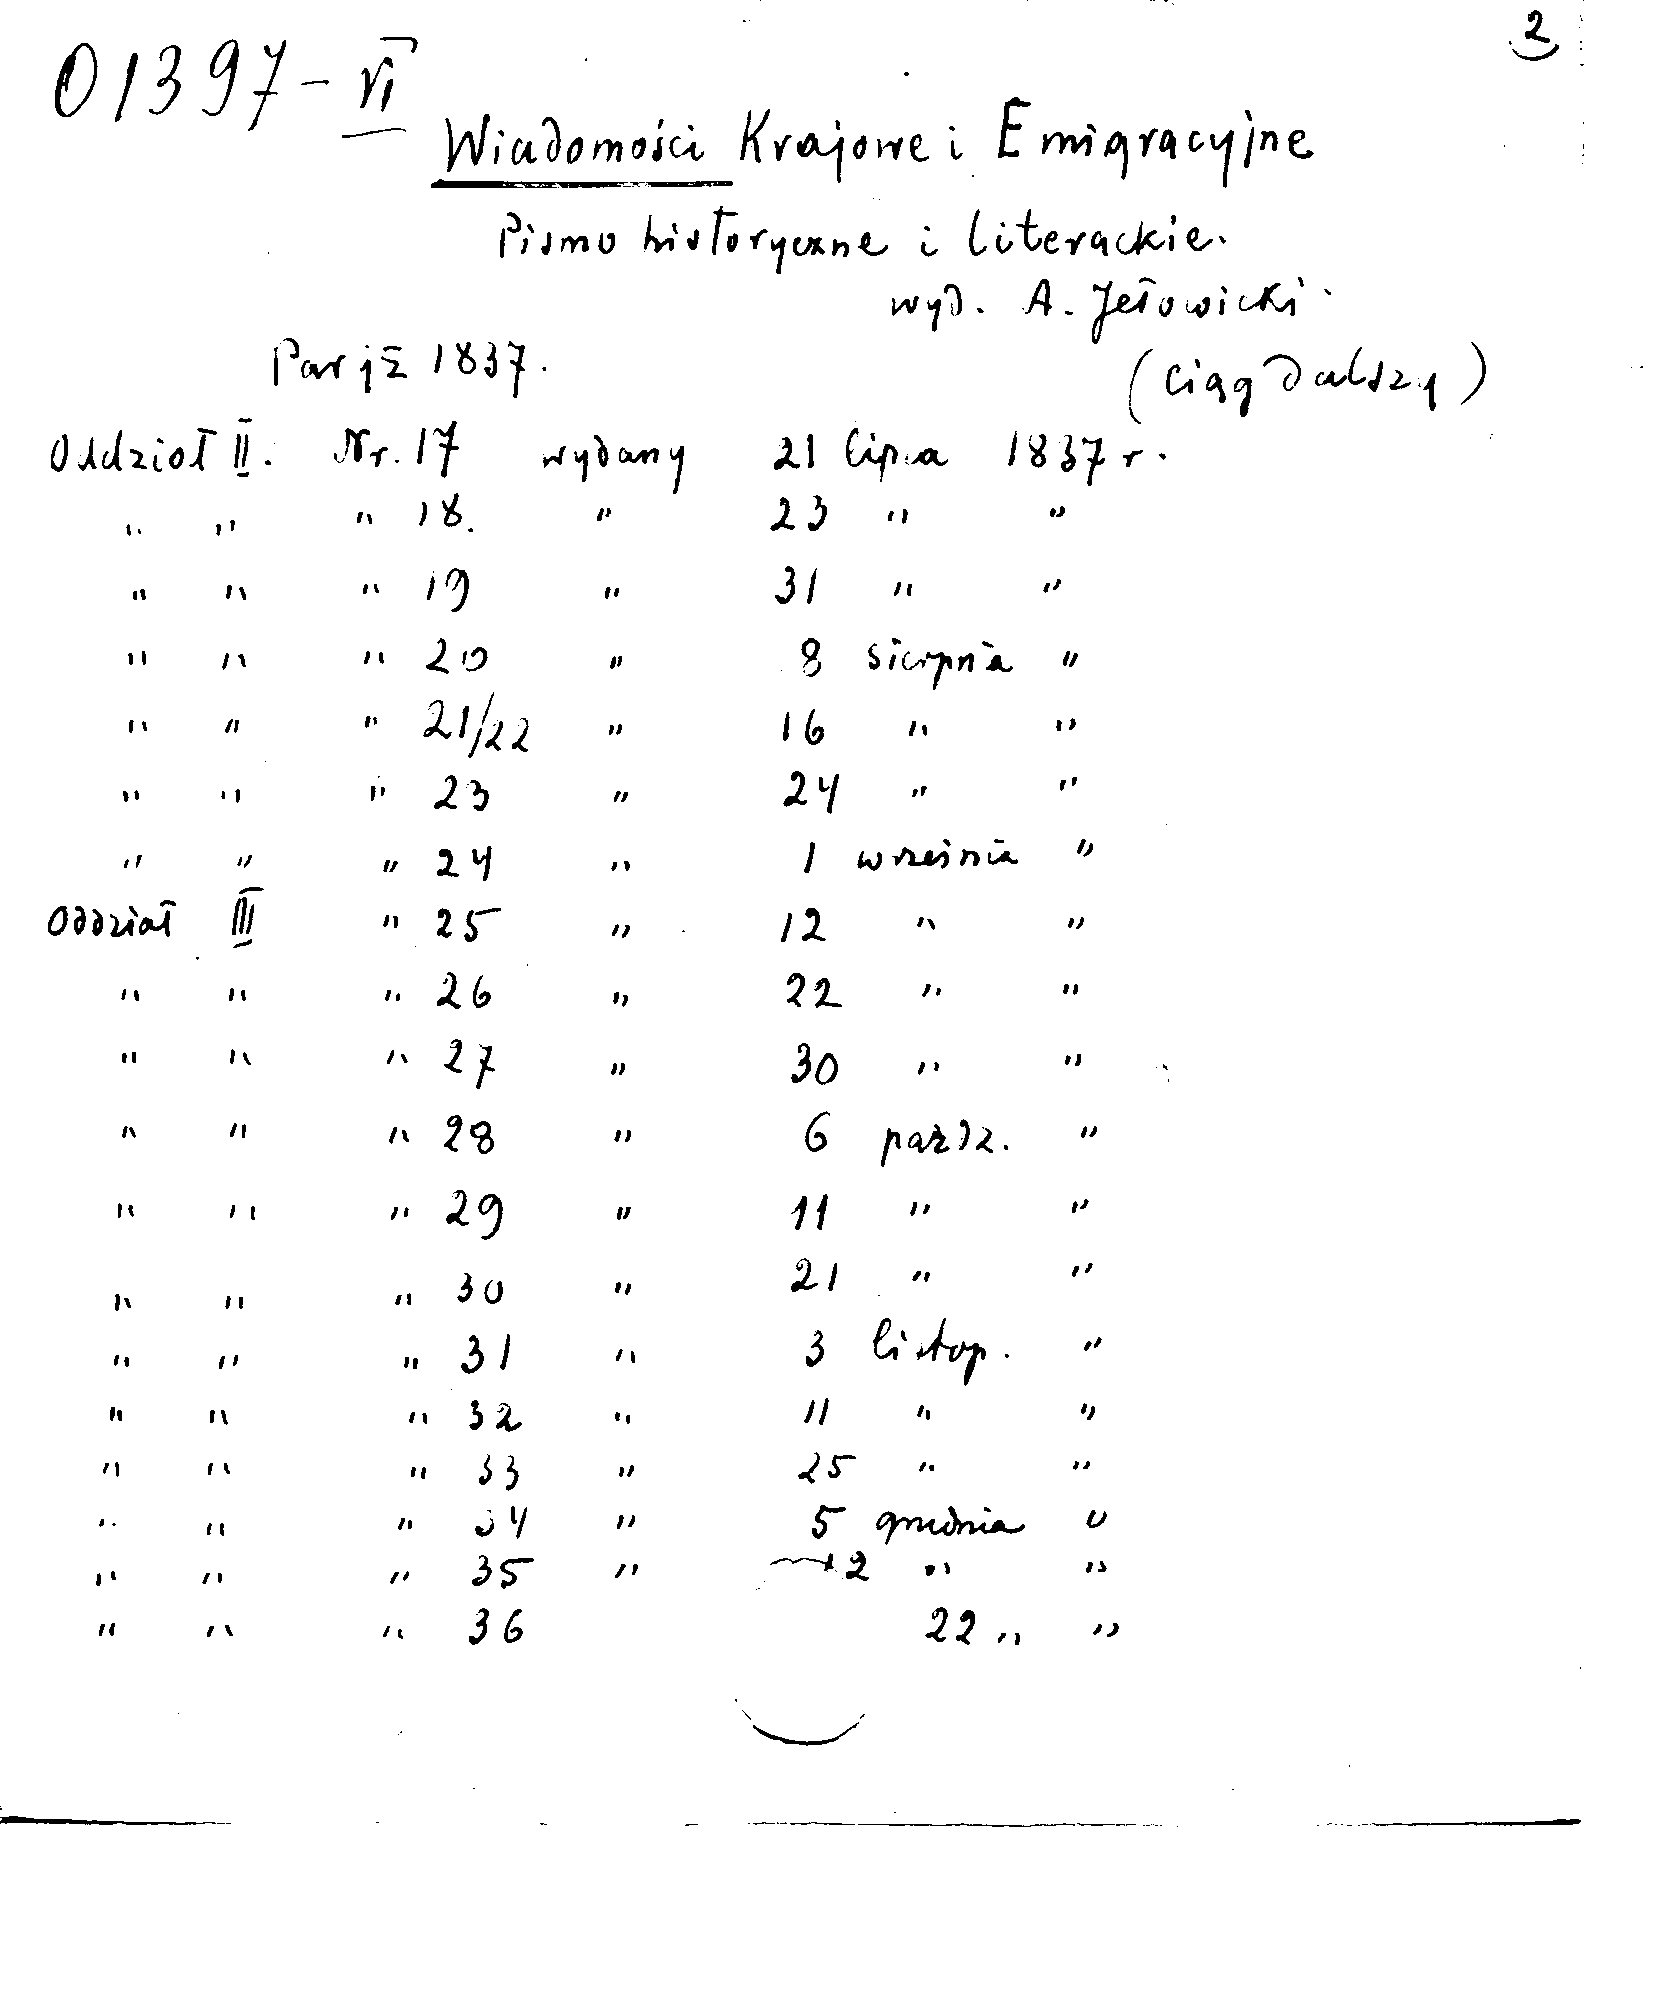 2
01397-VI
Wiadomości Krajowe i Emigracyjne
Pismo historyczne i literackie.
wyd. A. Jełowicki.
Paryż 1837.
(ciąg dalszy)
Oddział II. Nr. 17 wydany 21 lipca 1837 r.
" " " 18. " 23 " "
" " " 19 " 31 " "
" " " 20 " 8 sierpnia "
" " " 21/22 " 16 " "
" " " 23 " 24 " "
" " " 24 " 1 września "
Oddział III " 25 " 12 " "
" " " 26 " 22 " "
" " " 27 " 30 " "
" " " 28 " 6 paźdz. "
" " " 29 " 11 " "
" " " 30 " 21 " "
" " " 31 " 3 listop. "
" " " 32 " 11 " "
" " " 33 " 25 " "
" " " 34 " 5 grudnia "
" " " 35 " 12 " "
" " " 36 22 " "